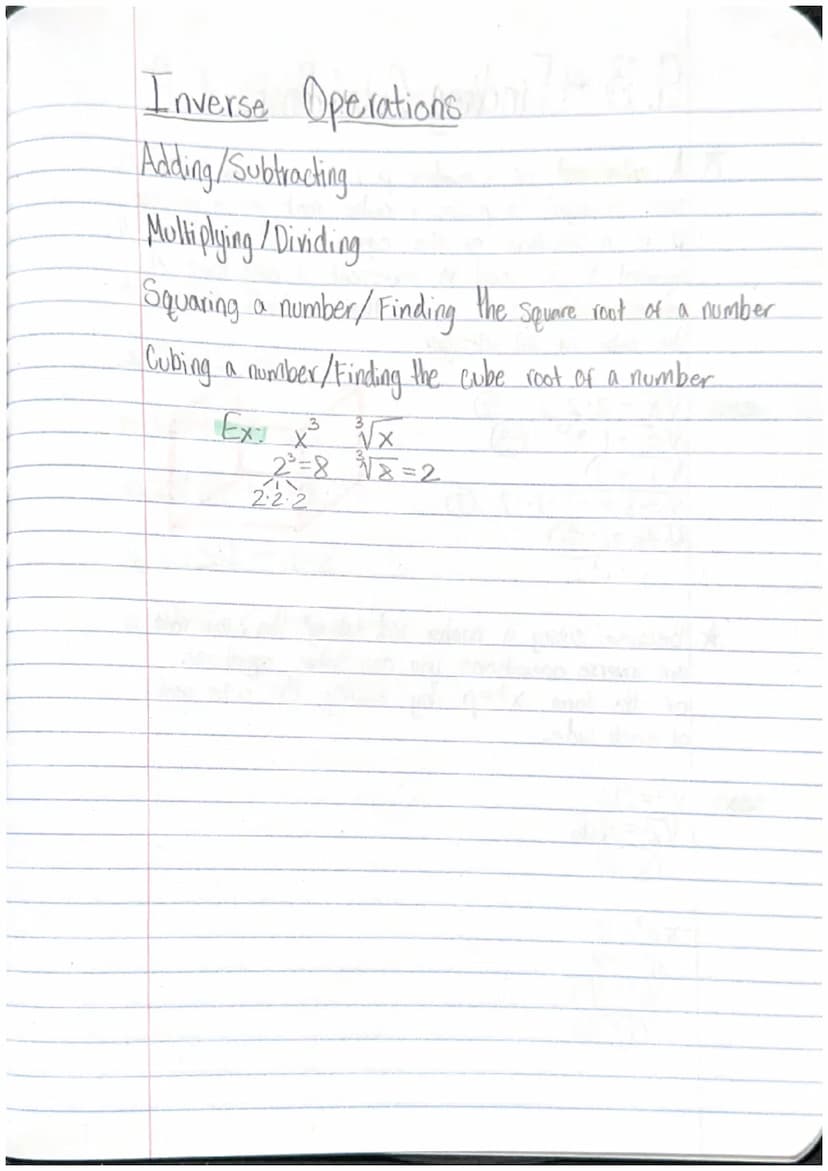 Inverse Operations
Adding/Subtracting
Multiplying/Dividing
Squaring a number/Finding the square root of a number
Cubing a number/Finding the cube root of a number
Ex: x³ ∛x
2³=8 ∛8=2
2·2·2